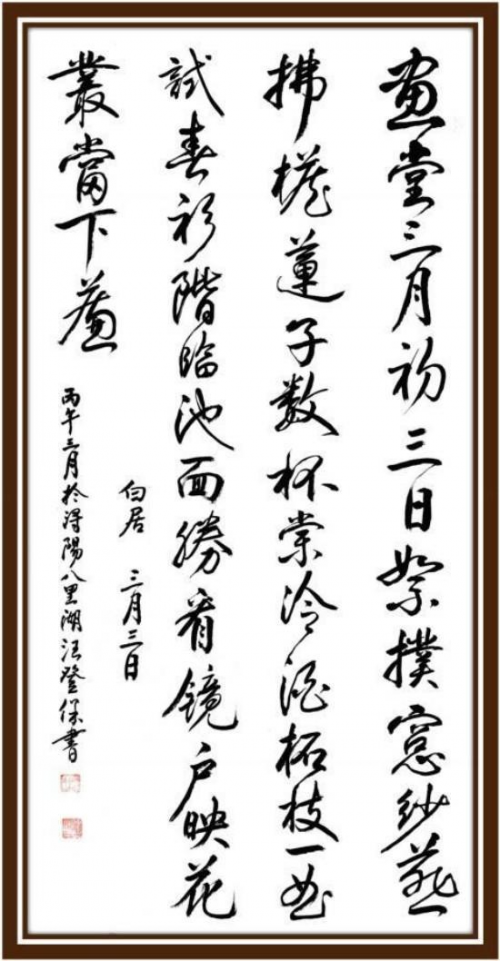 畫堂三月初三日絮撲窗紗燕
拂檐蓮子数杯嘗冷酒柘枝一曲
試春衫階臨池面勝看鏡户映花
叢當下簾
白居 三月三日
丙午三月於潯陽八里湖汪登保書